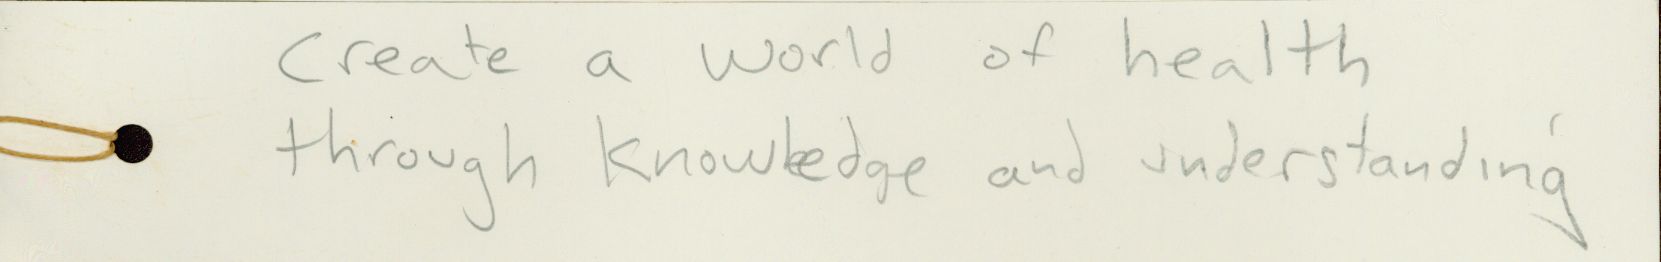 Create a world of health
through knowledge and understanding